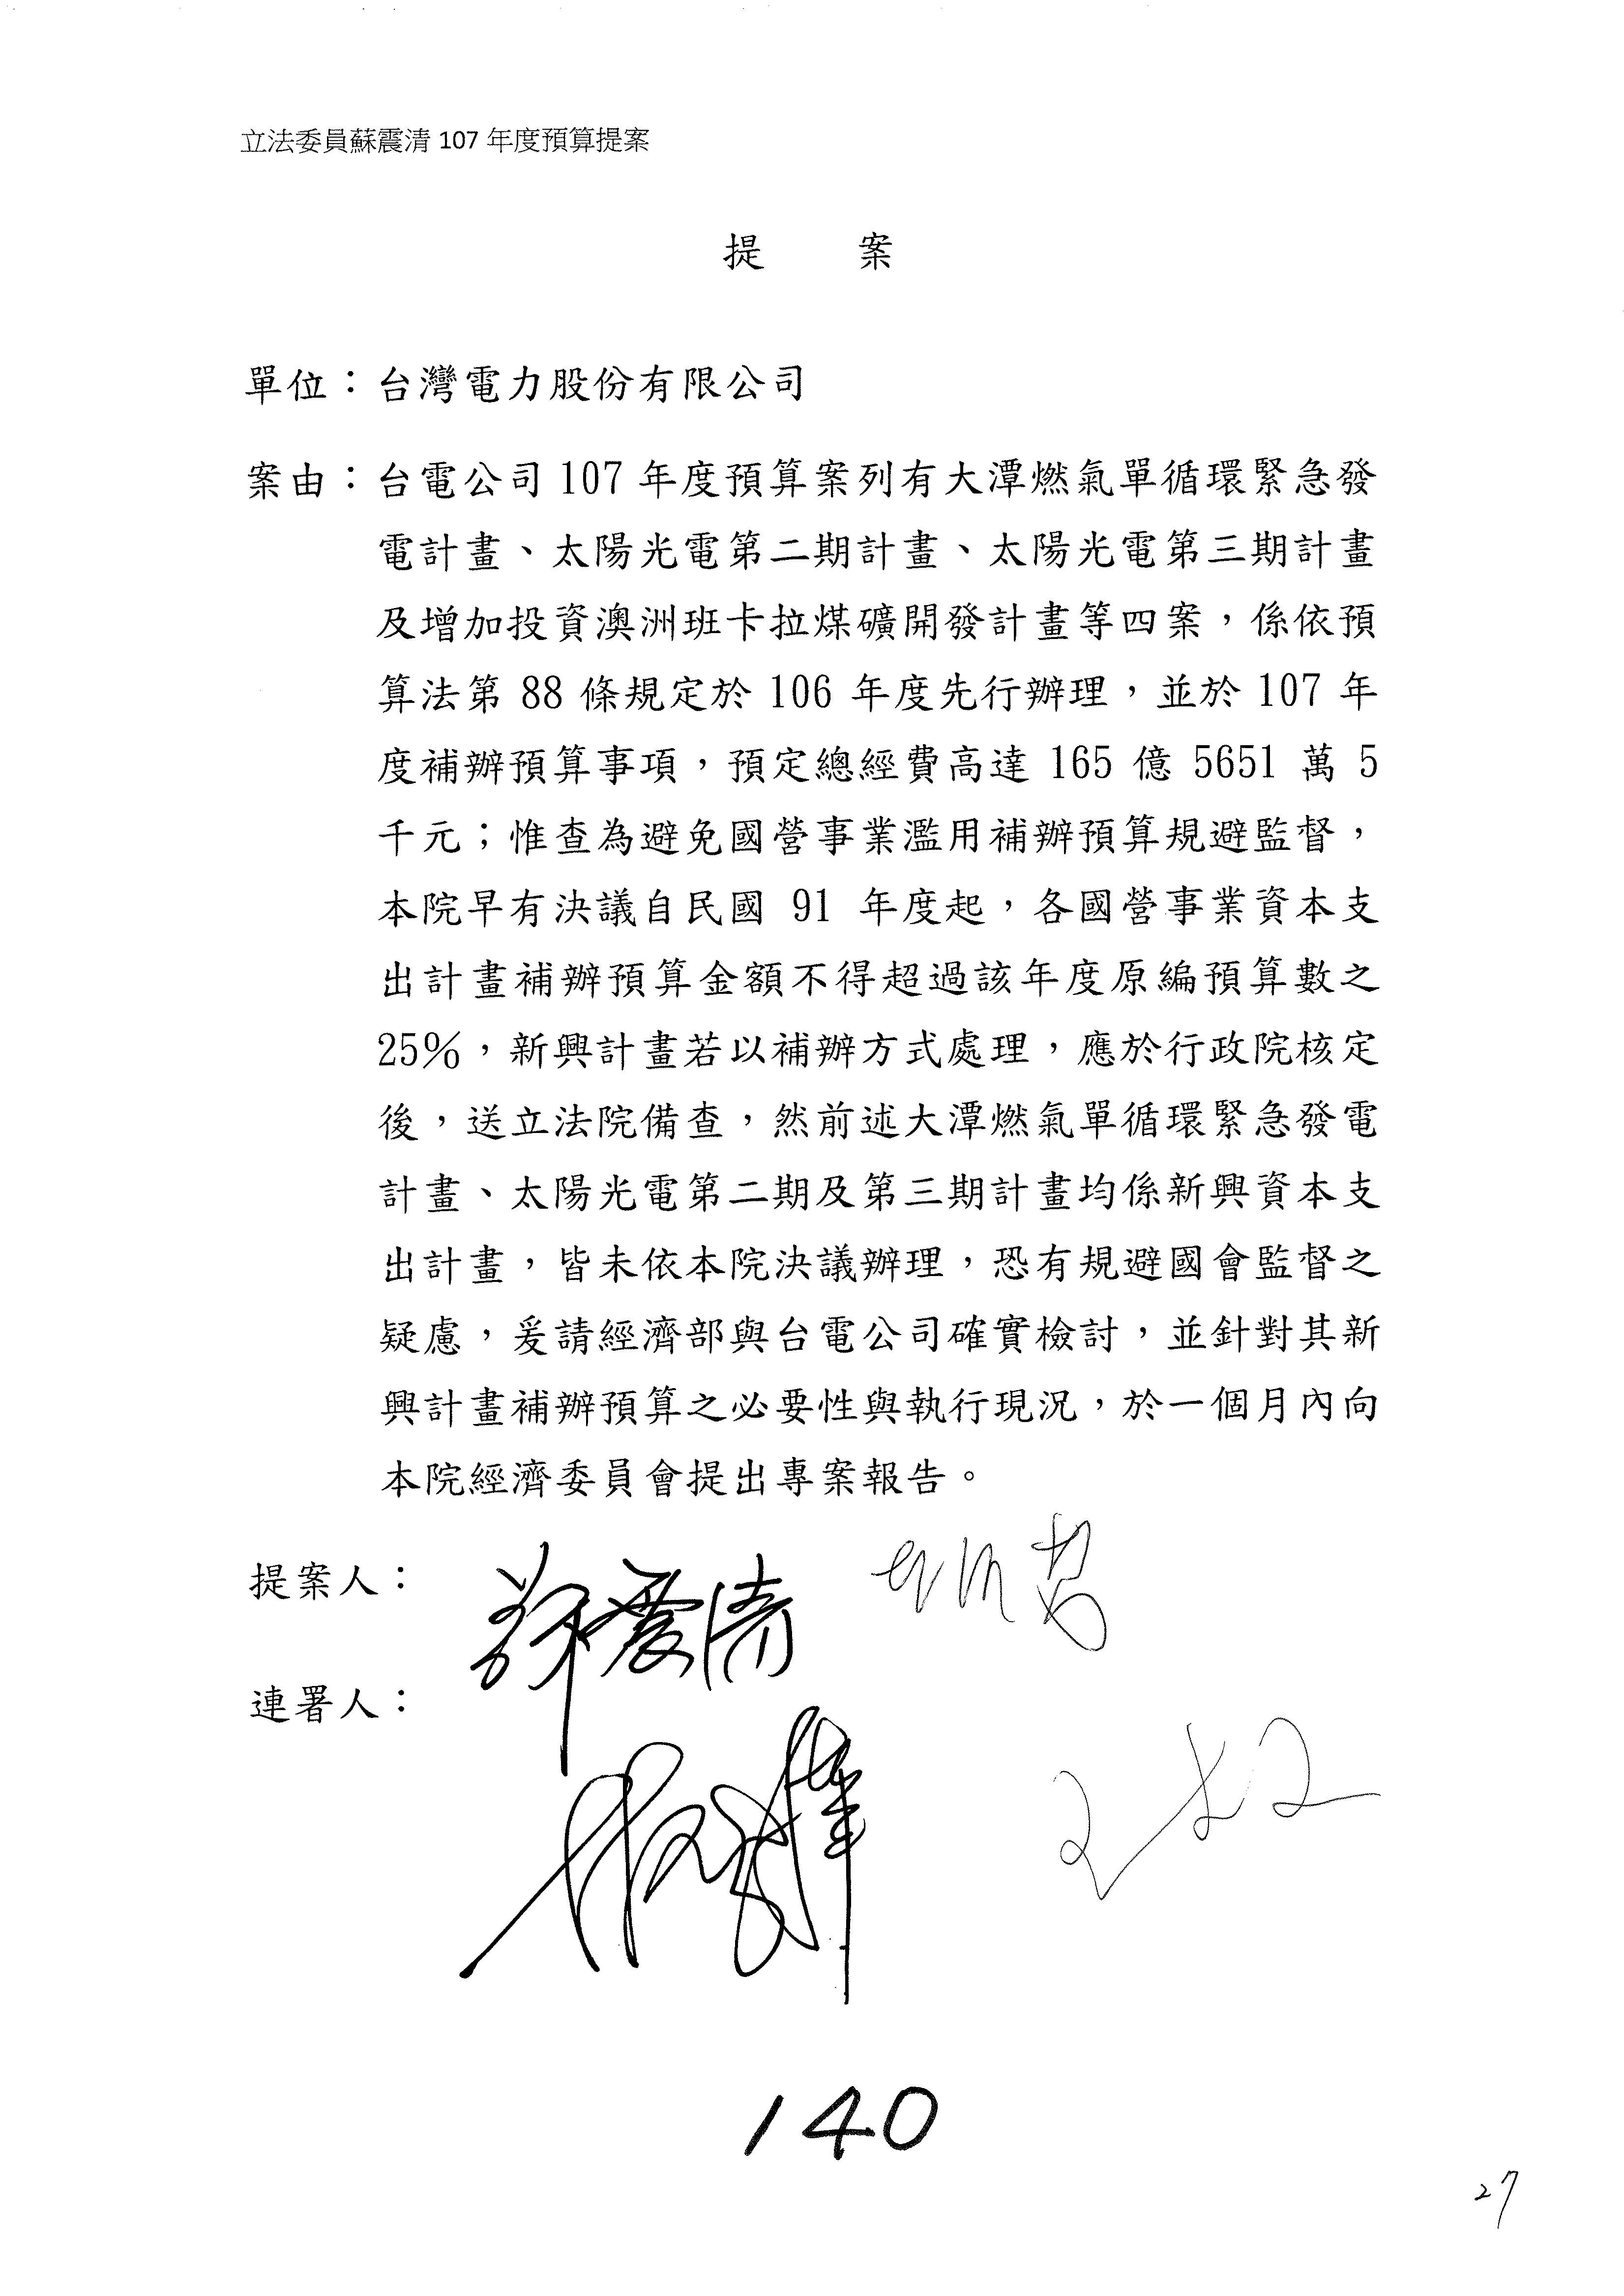 立法委員蘇震清 107 年度預算提案
提 案
單位：台灣電力股份有限公司
案由：台電公司 107 年度預算案列有大潭燃氣單循環緊急發
電計畫、太陽光電第二期計畫、太陽光電第三期計畫
及增加投資澳洲班卡拉煤礦開發計畫等四案，係依預
算法第 88 條規定於 106 年度先行辦理，並於 107 年
度補辦預算事項，預定總經費高達 165 億 5651 萬 5
千元；惟查為避免國營事業濫用補辦預算規避監督，
本院早有決議自民國 91 年度起，各國營事業資本支
出計畫補辦預算金額不得超過該年度原編預算數之
25%，新興計畫若以補辦方式處理，應於行政院核定
後，送立法院備查，然前述大潭燃氣單循環緊急發電
計畫、太陽光電第二期及第三期計畫均係新興資本支
出計畫，皆未依本院決議辦理，恐有規避國會監督之
疑慮，爰請經濟部與台電公司確實檢討，並針對其新
興計畫補辦預算之必要性與執行現況，於一個月內向
本院經濟委員會提出專案報告。
提案人：
蘇震清
連署人：
140
27